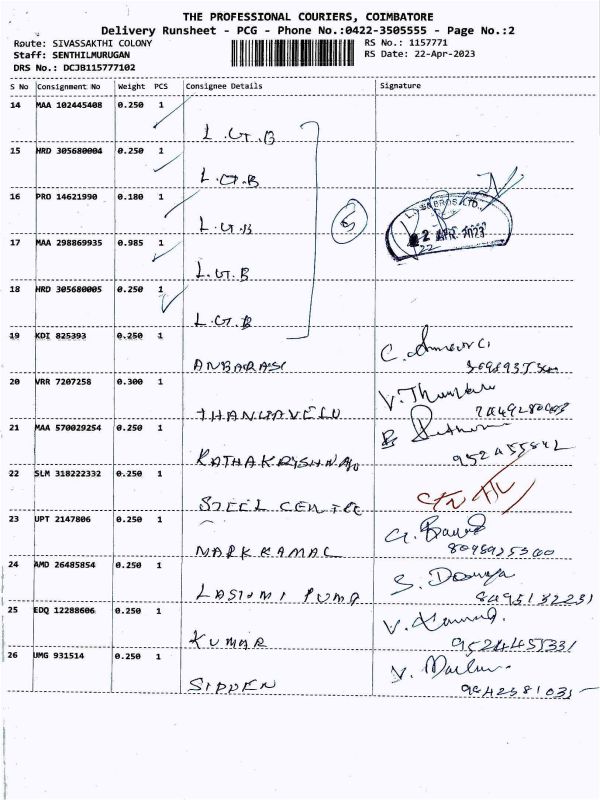 THE PROFESSIONAL COURIERS, COIMBATORE
Delivery Runsheet - PCG - Phone No.:0422-3505555 - Page No.:2
Route: SIVASSAKTHI COLONY RS No.: 1157771
Staff: SENTHILMURUGAN RS Date: 22-Apr-2023
DRS No.: DCJB115777102
S No Consignment No Weight PCS Consignee Details Signature
14 MAA 102445408 0.250 1
L.G.B
15 HRD 305680004 0.250 1
L.G.B
16 PRO 14621990 0.180 1
L.G.B
17 MAA 298869935 0.985 1
L.G.B
18 HRD 305680005 0.250 1
L.G.B
19 KDI 825393 0.250 1
ANBARASI
20 VRR 7207258 0.300 1
THANGAVELU
21 MAA 570029254 0.250 1
22 SLM 318222332 0.250 1
STEEL CENTRE
23 UPT 2147806 0.250 1
MARK KAMAL
24 AMD 26485854 0.250 1
PUMP
25 EDQ 12288606 0.250 1
KUMAR
9524455331
26 UMG 931514 0.250 1